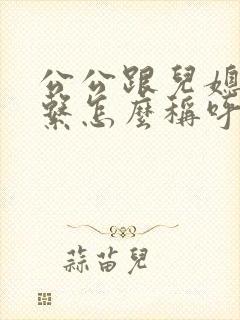 公公跟兒媳
繫怎麼稱呼
蒜苗兒